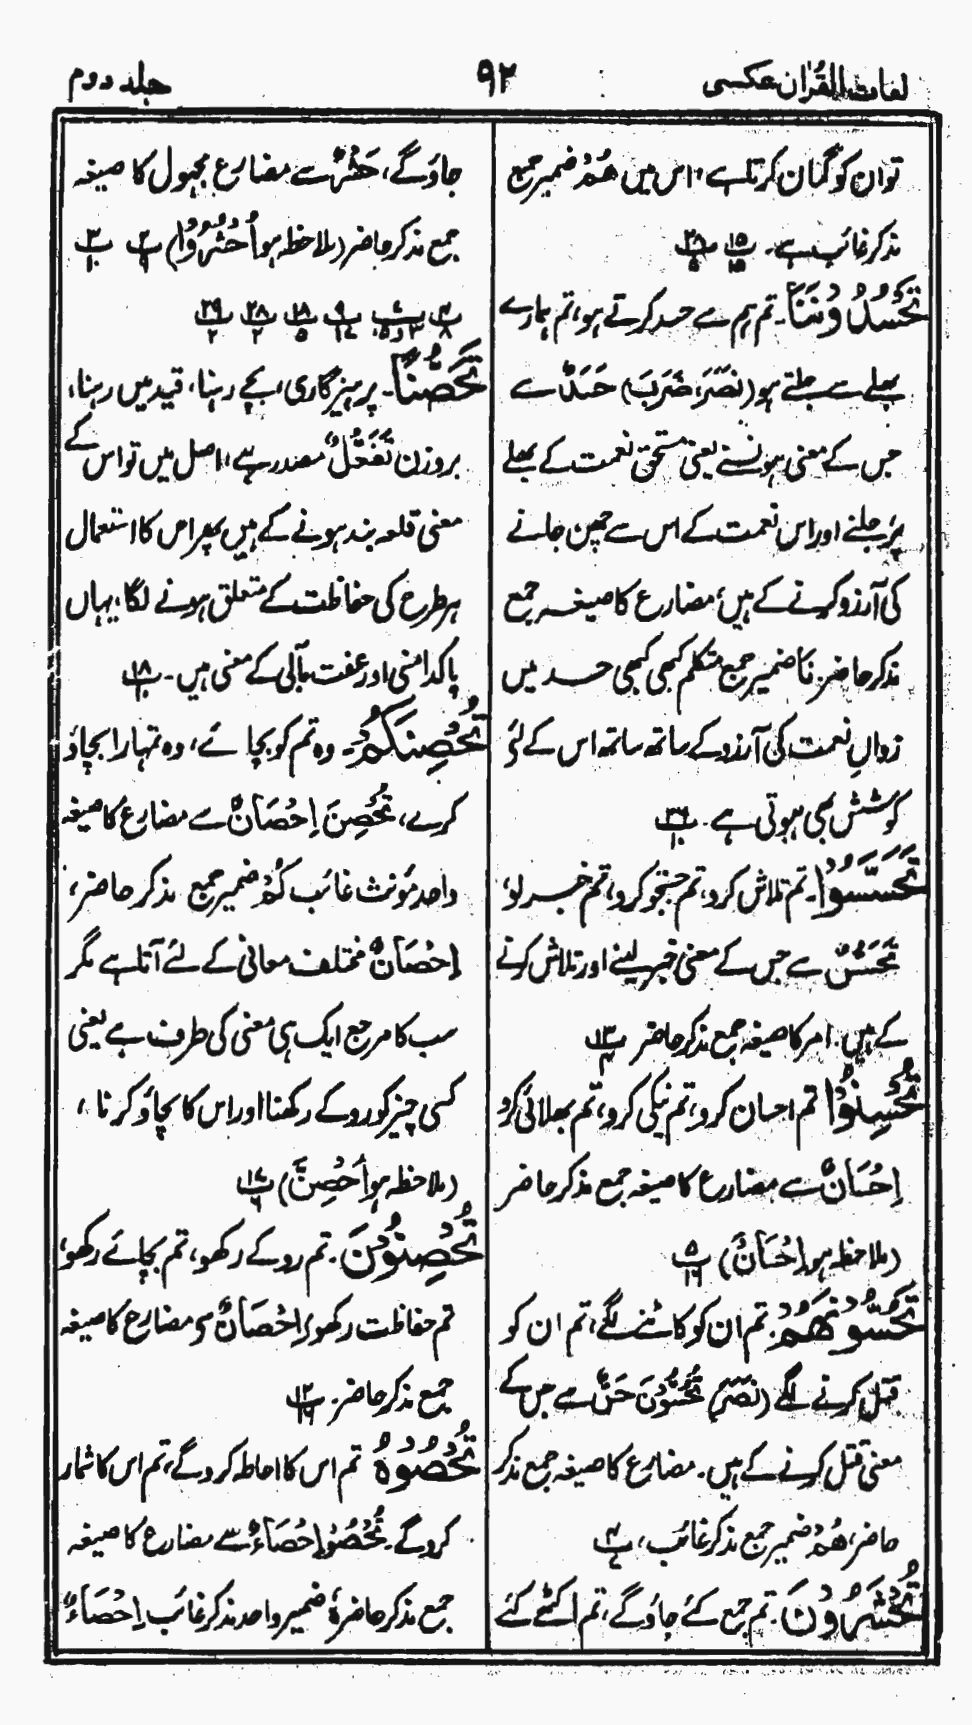 لغات القرآن عکسی
۹۲
جلد دوم
تو ان کو گمان کرتا ہے، اس میں ھُمْ ضمیر جمع
مذکر غائب ہے۔ پ۱۵ ۱۵ پ۲۸ ۵
تَحْسُدُوْنَنَا۔ تم ہم سے حسد کرتے ہو، تم ہمارے
بھلے سے جلتے ہو (نَصَرَ، ضَرَبَ) حَسَدٌ سے
جس کے معنی ہونسنے یعنی مستحق نعمت کے بھلے
پر جلنے اور اس نعمت کے اس سے چھن جانے
کی آرزو کرنے کے ہیں، مضارع کا صیغہ جمع
مذکر حاضر۔ نَا ضمیر جمع متکلم کبھی کبھی حسد میں
زوالِ نعمت کی آرزو کے ساتھ ساتھ اس کے لئے
کوشش بھی ہوتی ہے۔ پ۲۶ ۱۰
تَحَسَّسُوْا۔ تم تلاش کرو، تم جستجو کرو، تم خبر لو،
تَحَسُّسٌ سے جس کے معنی خبر لینے اور تلاش کرنے
کے ہیں۔ امر کا صیغہ جمع مذکر حاضر پ۱۳ ۴
تُحْسِنُوْا تم احسان کرو، تم نیکی کرو، تم بھلائی کرو
اِحْسَانٌ سے مضارع کا صیغہ جمع مذکر حاضر
(ملاحظہ ہو اِحْسَانٌ) پ۵ ۱۶
تَحُسُّوْنَهُمْ۔ تم ان کو کاٹنے لگے، تم ان کو
قتل کرنے لگے (نَصَرَ) تَحُسُّوْنَ حَسٌّ سے جس کے
معنی قتل کرنے کے ہیں۔ مضارع کا صیغہ جمع مذکر
حاضر، ھُمْ ضمیر جمع مذکر غائب، پ۴ ۷
تُحْشَرُوْنَ۔ تم جمع کئے جاؤ گے، تم اکٹھے کئے
جاؤ گے، حَشْرٌ سے مضارع مجہول کا صیغہ
جمع مذکر حاضر (ملاحظہ ہو اُحْشُرُوْا) پ۲ ۹ پ۳ ۱۰
پ۴ ۸ پ۷ ۳ و ۱۵ پ۹ ۱۷ پ۱۸ ۵ پ۲۸ ۲ پ۲۹ ۲
تَحَصُّنًا۔ پرہیزگاری، بچے رہنا، قید میں رہنا،
بروزن تَفَعُّلٌ مصدر ہے، اصل میں تو اس کے
معنی قلعہ بند ہونے کے ہیں پھر اس کا استعمال
ہر طرح کی حفاظت کے متعلق ہونے لگا، یہاں
پاکدامنی اور عفت مآلی کے معنی ہیں۔ پ۱۸ ۱۰
تُحْصِنَكُمْ۔ وہ تم کو بچائے، وہ تمہارا بچاؤ
کرے، تُحْصِنَ اِحْصَانٌ سے مضارع کا صیغہ
واحد مؤنث غائب کُمْ ضمیر جمع مذکر حاضر،
اِحْصَانٌ مختلف معانی کے لئے آتا ہے مگر
سب کا مرجع ایک ہی معنی کی طرف ہے یعنی
کسی چیز کو روکے رکھنا اور اس کا بچاؤ کرنا،
(ملاحظہ ہو اُحْصِنَّ) پ۱۷ ۶
تُحْصِنُوْنَ۔ تم روکے رکھو، تم بچائے رکھو،
تم حفاظت رکھو، اِحْصَانٌ سے مضارع کا صیغہ
جمع مذکر حاضر۔ پ۱۲ ۱۶
تُحْصُوْهُ تم اس کا احاطہ کرو گے، تم اس کا شمار
کرو گے۔ تُحْصُوْ اِحْصَاءٌ سے مضارع کا صیغہ
جمع مذکر حاضر، ہٗ ضمیر واحد مذکر غائب، اِحْصَاءٌ